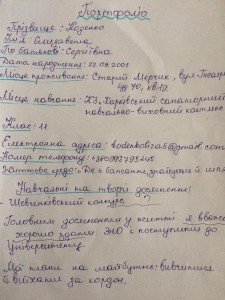 Портфоліо
Прізвище: Коденко
Ім'я: Єлизавета
По батькові: Сергіївна
Дата народження: 22.09.2001
Місце проживання: Старий Мерчик, вул
кв.12
Місце навчання: КЗ „Харківський санаторний
навчально-виховний комплекс
Клас: 11
Електронна адреса:
Номер телефону:
Життєве кредо:
Навчальні та творчі досягнення:
Шевченківський конкурс
?
Головним досягненням у житті я вважаю
хорошо здати ЗНО і поступити до
Університету
Мої плани на майбутнє: вивчитися
й виїхати за кордон.